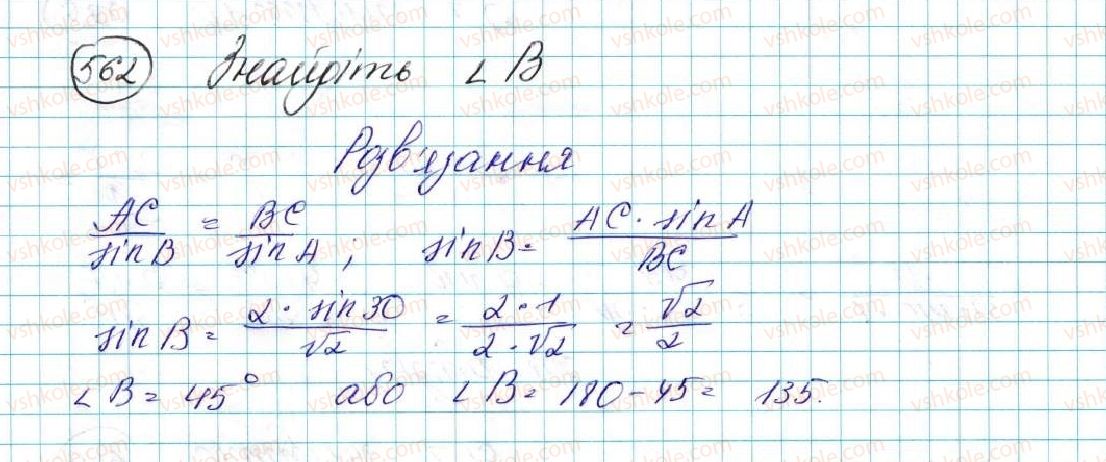 562 Знайдіть ∠B
Розв'язання
AC/sin B = BC/sin A; sin B = AC · sin A/BC
sin B = 2 · sin 30/√2 = 2 · 1/2 · √2 = √2/2
∠B = 45° або ∠B = 180 - 45 = 135.
vshkole.com